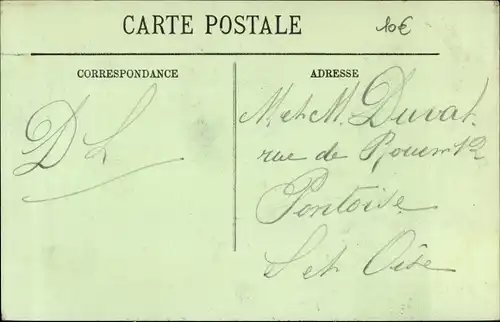 CARTE POSTALE
10€
CORRESPONDANCE
ADRESSE
D L
M. et M. Duval
rue de Rouen 12
Pontoise
S et Oise